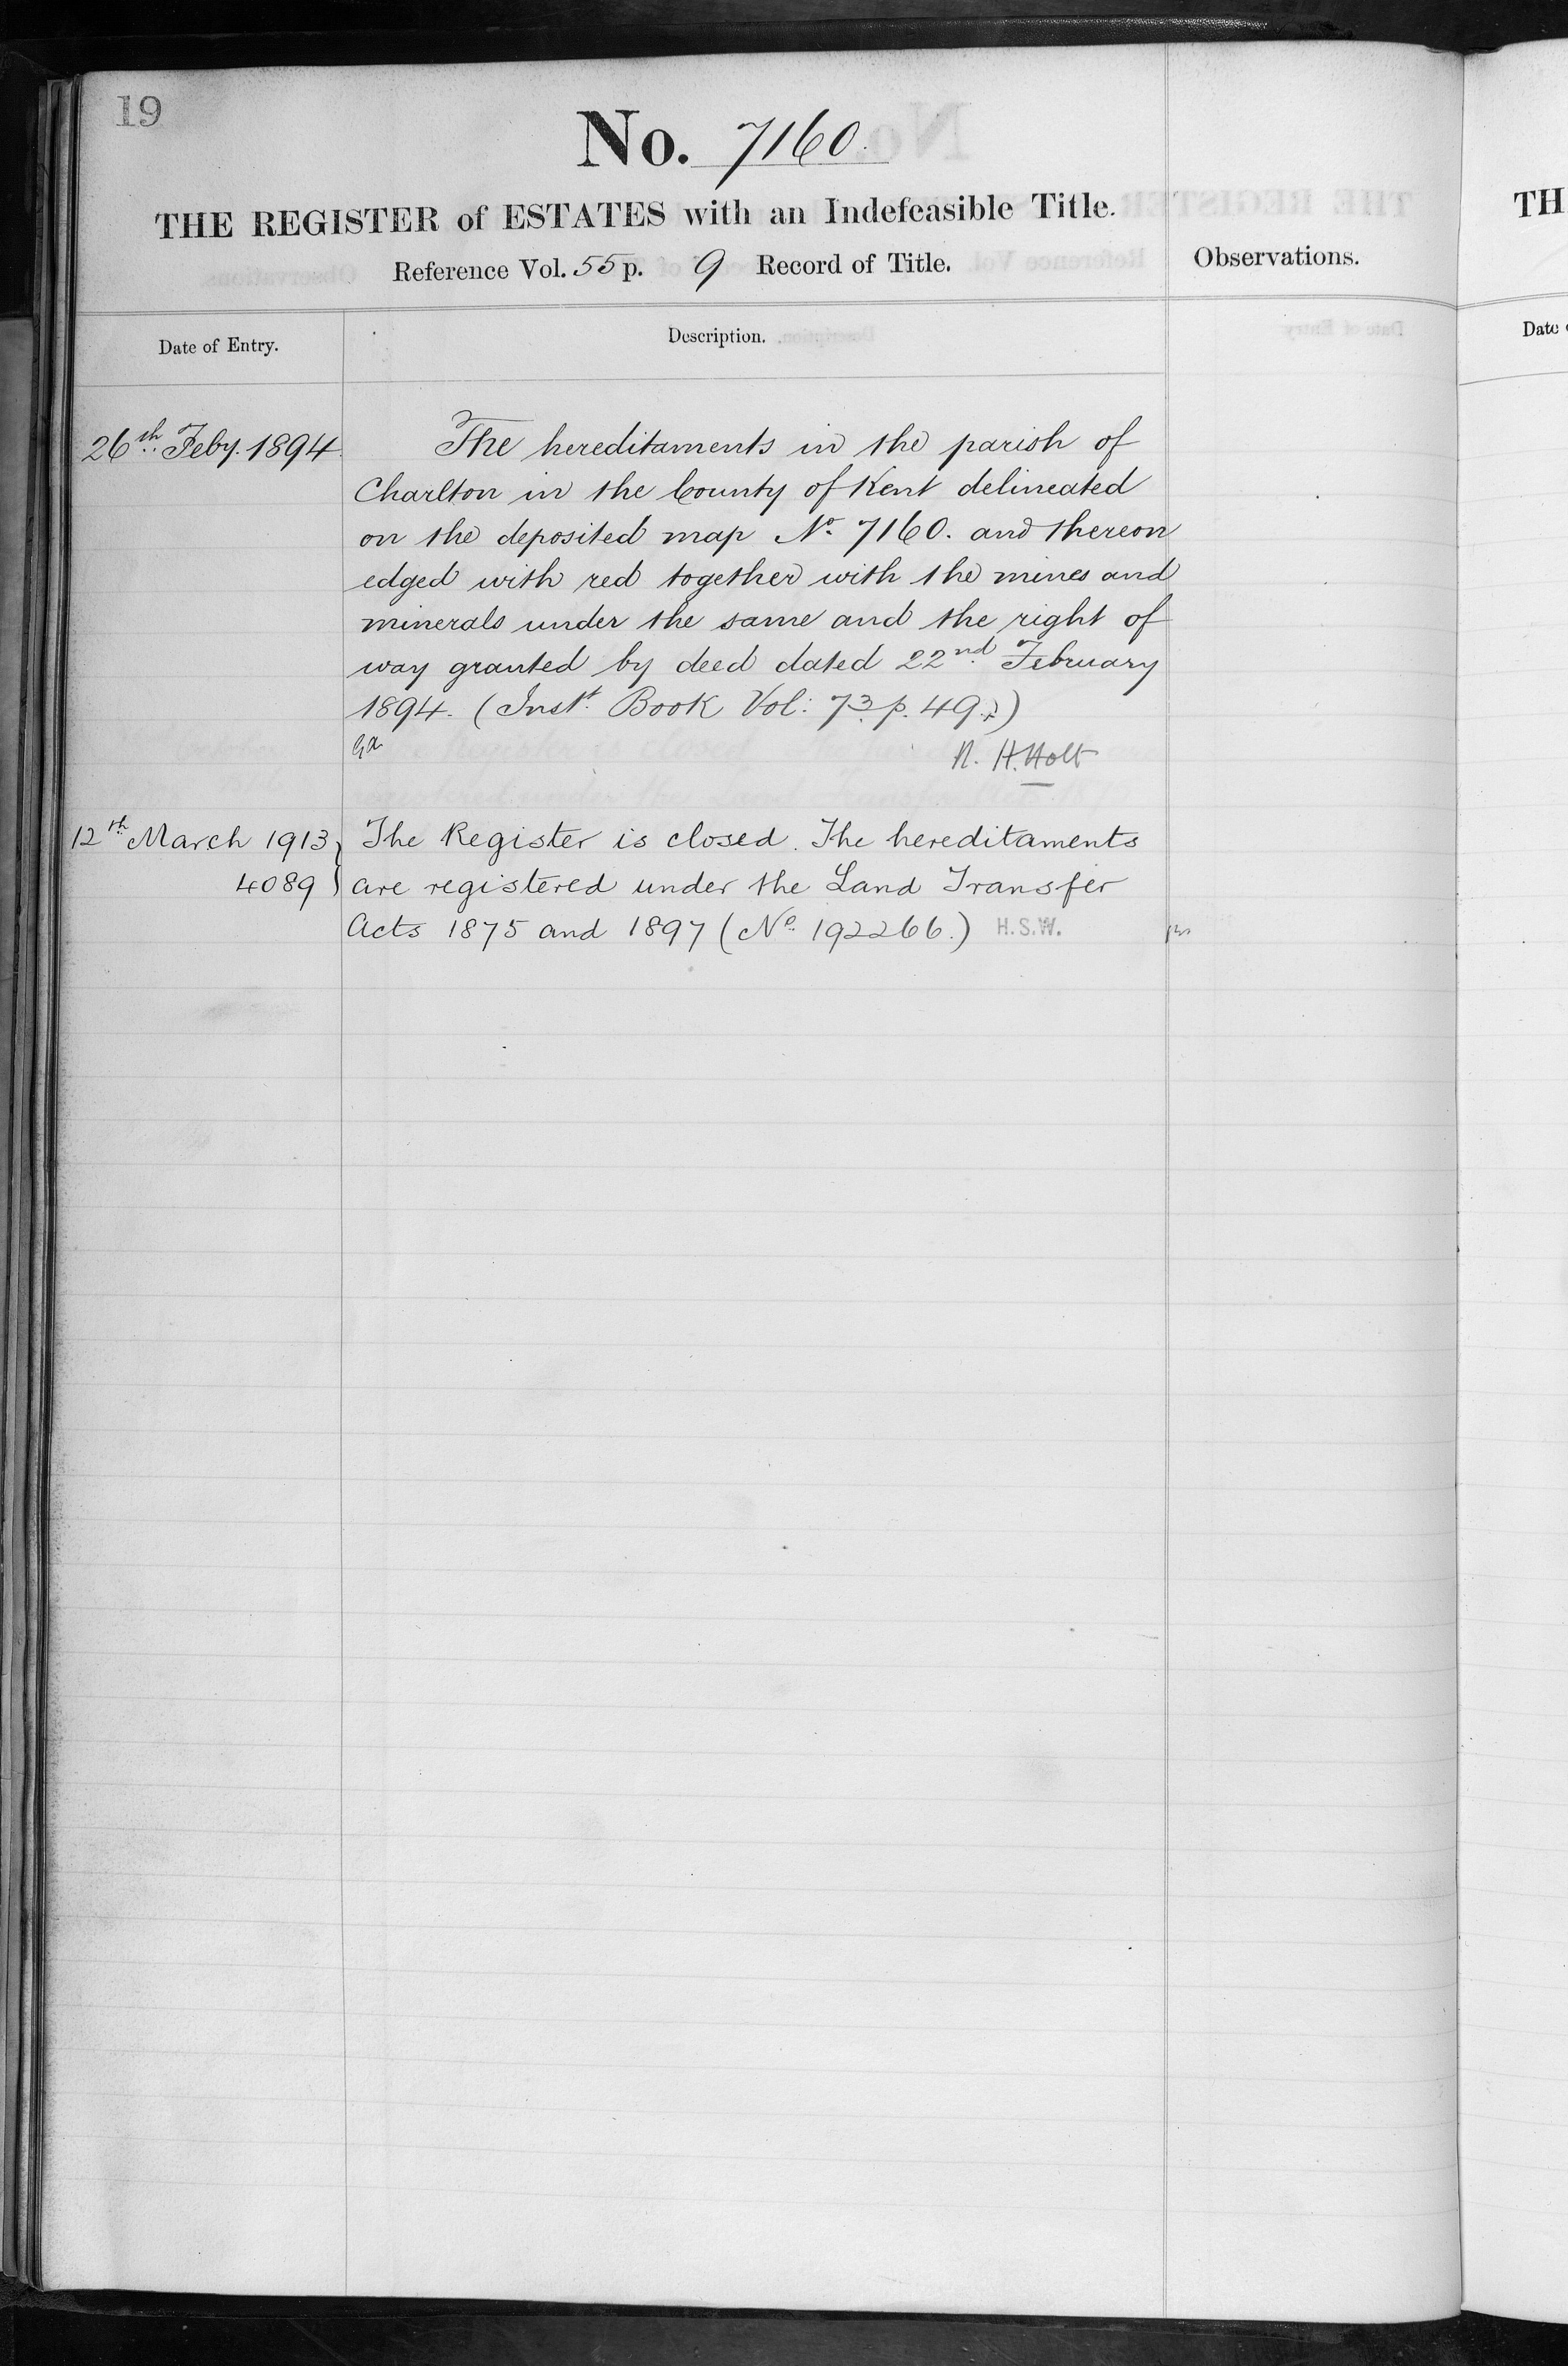 19
No. 7160.
THE REGISTER of ESTATES with an Indefeasible Title.
Reference Vol. 55 p. 9 Record of Title.
Observations.
Date of Entry.
Description.
26th Feby. 1894.
The hereditaments in the parish of
Charlton in the County of Kent delineated
on the deposited map No. 7160. and thereon
edged with red together with the mines and
minerals under the same and the right of
way granted by deed dated 22nd February
1894. (Inst. Book Vol: 73 p. 49.)
R. H. Holt
12th March 1913
4089
The Register is closed. The hereditaments
are registered under the Land Transfer
Acts 1875 and 1897 (No. 192266.) H.S.W.
TH
Date